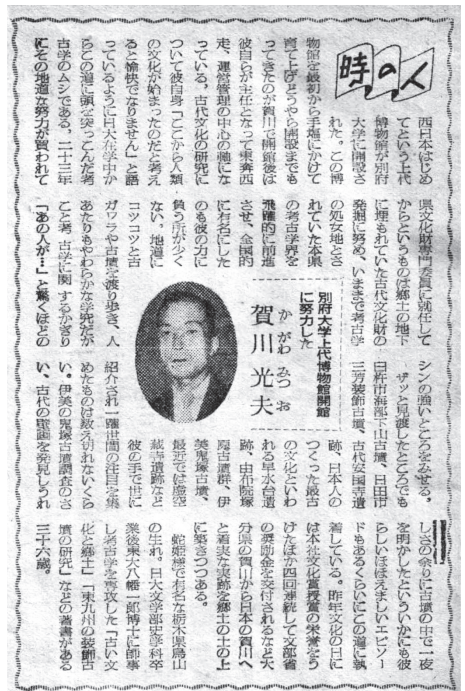 時の人
別府大学上代博物館開館
に努力した
賀川光夫
かがわみつお
西日本はじめ
てという上代
博物館が別府
大学に開設さ
れた。この博
物館を最初から手塩にかけて
育て上げどうやら開設までも
ってきたのが賀川で開館後は
彼自らが主任となって東奔西
走、運営管理の中心の軸にな
っている。古代文化の研究に
ついて彼自身「ここから人類
の文化が始まったのだと考え
ると愉快でなりません」と語
っているように日大在学中か
らこの道に頭を突っこんだ考
古学のムシである。二十三年
にその地道な努力が買われて
県文化財専門委員に就任して
からというものは郷土の地下
に埋もれていた古代文化財の
発掘に努め、いままで考古学
の処女地とさ
れていた本県
の考古学界を
飛躍的に前進
させ、全国的
に有名にした
のも彼の力に
負う所が少く
ない。地道に
コツコツと古
ガワラや古墳を渡り歩き、人
あたりもやわらかな学究だが
こと考 古学に関 するかぎり
「あの人が…」と驚くほどの
シンの強いところをみせる。
ザッと見渡したところでも
臼杵市海部下山古墳、日田市
三芳装飾古墳、古代安国寺遺
跡、日本人の
つくった最古
の文化といわ
れる早水台遺
跡、由布院塚
原古墳群、伊
美鬼塚古墳、
最近では虚空
蔵寺遺跡など
彼の手で世に
紹介され一躍世間の注目を集
めたものは数え切れないくら
い。伊美の鬼塚古墳調査のさ
い、古代の壁画を発見しうれ
しさの余りに古墳の中で一夜
を明かしたといういかにも彼
らしいほほえましいエピソー
ドもあるくらいにこの道に執
着している。昨年文化の日に
は本社文化賞授賞の栄養をう
けたほか四回連続して文部省
の奨励金を交付されるなど大
分県の賀川から日本の賀川へ
と着実な業跡を郷土の土の上
に築きつつある。
蛇姫様で有名な栃木県烏山
の生れ。日大文学部史学科卒
業後東大八幡一郎博士に師事
し考古学を専攻した「古い文
化と郷土」「東九州の装飾古
墳の研究」などの著書がある
三十六歳。